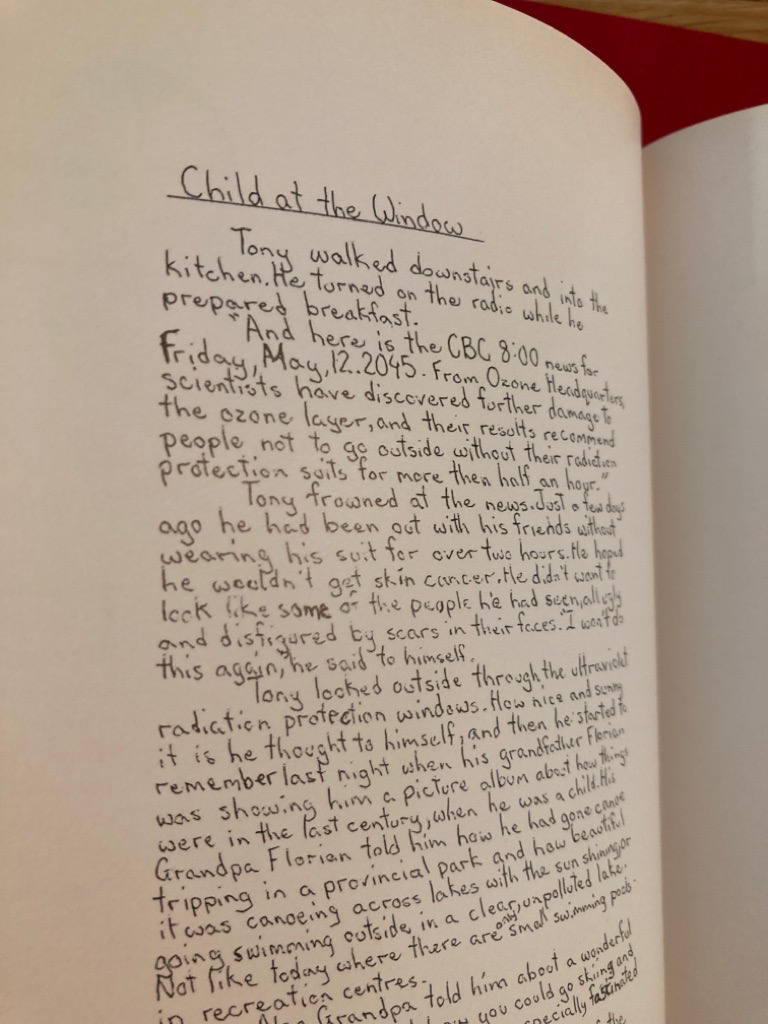 Child at the Window
Tony walked downstairs and into the
kitchen. He turned on the radio while he
prepared breakfast.
"And here is the CBC 8:00 news for
Friday, May, 12. 2045. From Ozone Headquarters,
scientists have discovered further damage to
the ozone layer, and their results recommend
people not to go outside without their radiction
protection suits for more then half an hour."
Tony frowned at the news. Just a few days
ago he had been out with his friends without
wearing his suit for over two hours. He hoped
he wouldn't get skin cancer. He didn't want to
look like some of the people he had seen, all ugly
and disfigured by scars in their faces. "I won't do
this again," he said to himself.
Tony looked outside through the ultraviolet
radiation protection windows. How nice and sunny
it is he thought to himself, and then he started to
remember last night when his grandfather Florian
was showing him a picture album about how things
were in the last century, when he was a child. His
Grandpa Florian told him how he had gone canoe
tripping in a provincial park and how beautiful
it was canoeing across lakes with the sun shining, or
going swimming outside in a clear, unpolluted lake.
Not like today where there are only small swimming pools
in recreation centres.
Grandpa told him about a wonderful
how you could go skiing and
especially fascinated
the